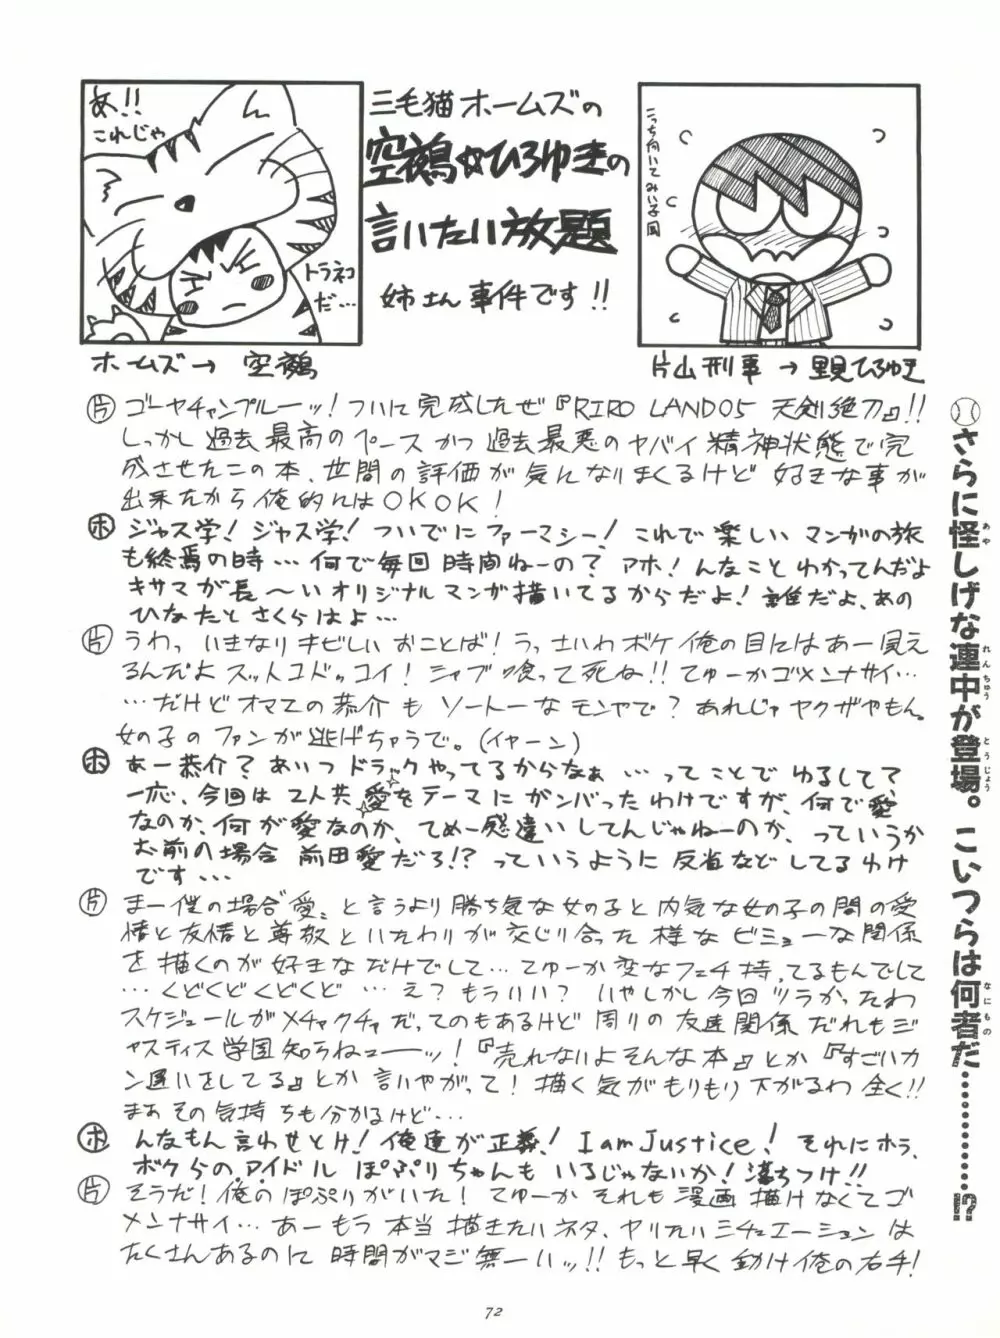 あ!!
これじゃ
トラネコ
だ…
ホームズ→ 空鵺
三毛猫ホームズの
空鵺☆ひろゆきの
言いたい放題
姉さん事件です!!
こっち向いてみい子風
片山刑事 → 里見ひろゆき
片 ゴーヤチャンプルーッ!ついに完成したぜ『RIRO LAND05 天剣絶刀』!!
しっかし過去最高のペースかつ過去最悪のヤバイ精神状態で完
成させたこの本、世間の評価が気になりまくるけど好きな事が
出来たから俺的にはOKOK!
ホ ジャス学!ジャス学!ついでにファーマシー!これで楽しいマンガの旅
も終焉の時…何で毎回時間ねーの?アホ!んなことわかってんだよ
キサマが長〜いオリジナルマンガ描いてるからだよ!誰だよ、あの
ひなたとさくらはよ…
片 うわっ、いきなりキビしいおことば!うっさいわボケ俺の目にはあー見え
るんだよスットコドッコイ!シャブ喰って死ね!!てゆーかゴメンナサイ…
…だけどオマエの恭介もソートーなモンやで?あれじゃヤクザやもん。
女の子のファンが逃げちゃうで。(イヤーン)
ホ あー恭介?あいつドラックやってるからなぁ…ってことでゆるして?
一応、今回は2人共、愛をテーマにガンバったわけですが、何で愛
なのか、何が愛なのか、てめー感違いしてんじゃねーのか、っていうか
お前の場合前田愛だろ!?っていうように反省などしてるわけ
です…
片 まー僕の場合〝愛〟と言うより勝ち気な女の子と内気な女の子の間の愛
情と友情と尊敬といたわりが交じり合った様なビミョーな関係
を描くのが好きなだけでして…てゆーか変なフェチ持ってるもんでして
…くどくどくどくど…え?もういい?いやしかし今回ツラかったわ
スケジュールがメチャクチャだってのもあるけど周りの友達関係だれもジ
ャスティス学園知らねェーッ!『売れないよそんな本』とか『すごいカ
ン違いをしてる』とか言いやがって!描く気がもりもり下がるわ全く!!
まぁその気持ちも分かるけど…
ホ んなもん言わせとけ!俺達が正義!I am Justice!それにホラ、
ボクらのアイドルぽぷりちゃんもいるじゃないか!落ちつけ!!
片 そうだ!俺のぽぷりがいた!てゆーかそれも漫画描けなくてゴ
メンナサイ…あーもう本当描きたいネタ、ヤリたいシチュエーションは
たくさんあるのに時間がマジ無ーいッ!!もっと早く動け俺の右手!
さらに怪しげな連中が登場。こいつらは何者だ……………!?
72